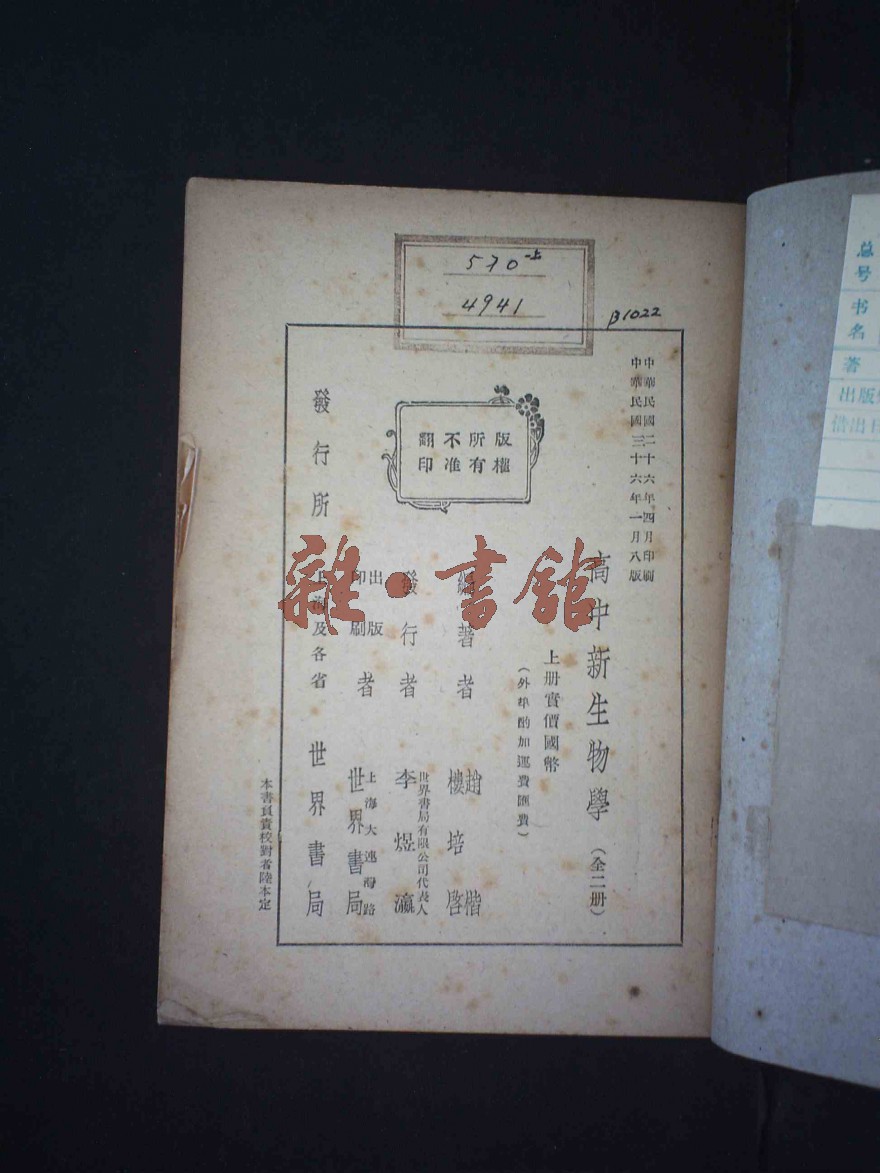 570-上
4941
B1022
中華民國二十六年四月印刷
中華民國三十六年一月八版
高中新生物學（全二册）
上册實價國幣
（外埠酌加運費匯費）
編著者 趙楷 樓培啓
發行者 世界書局有限公司代表人 李煜瀛
出版印刷者 上海大連灣路 世界書局
發行所 上海及各省 世界書局
版權
所有
不准
翻印
本書負責校對者陸本定
雜·書館
总号
书名
著
出版
借出日